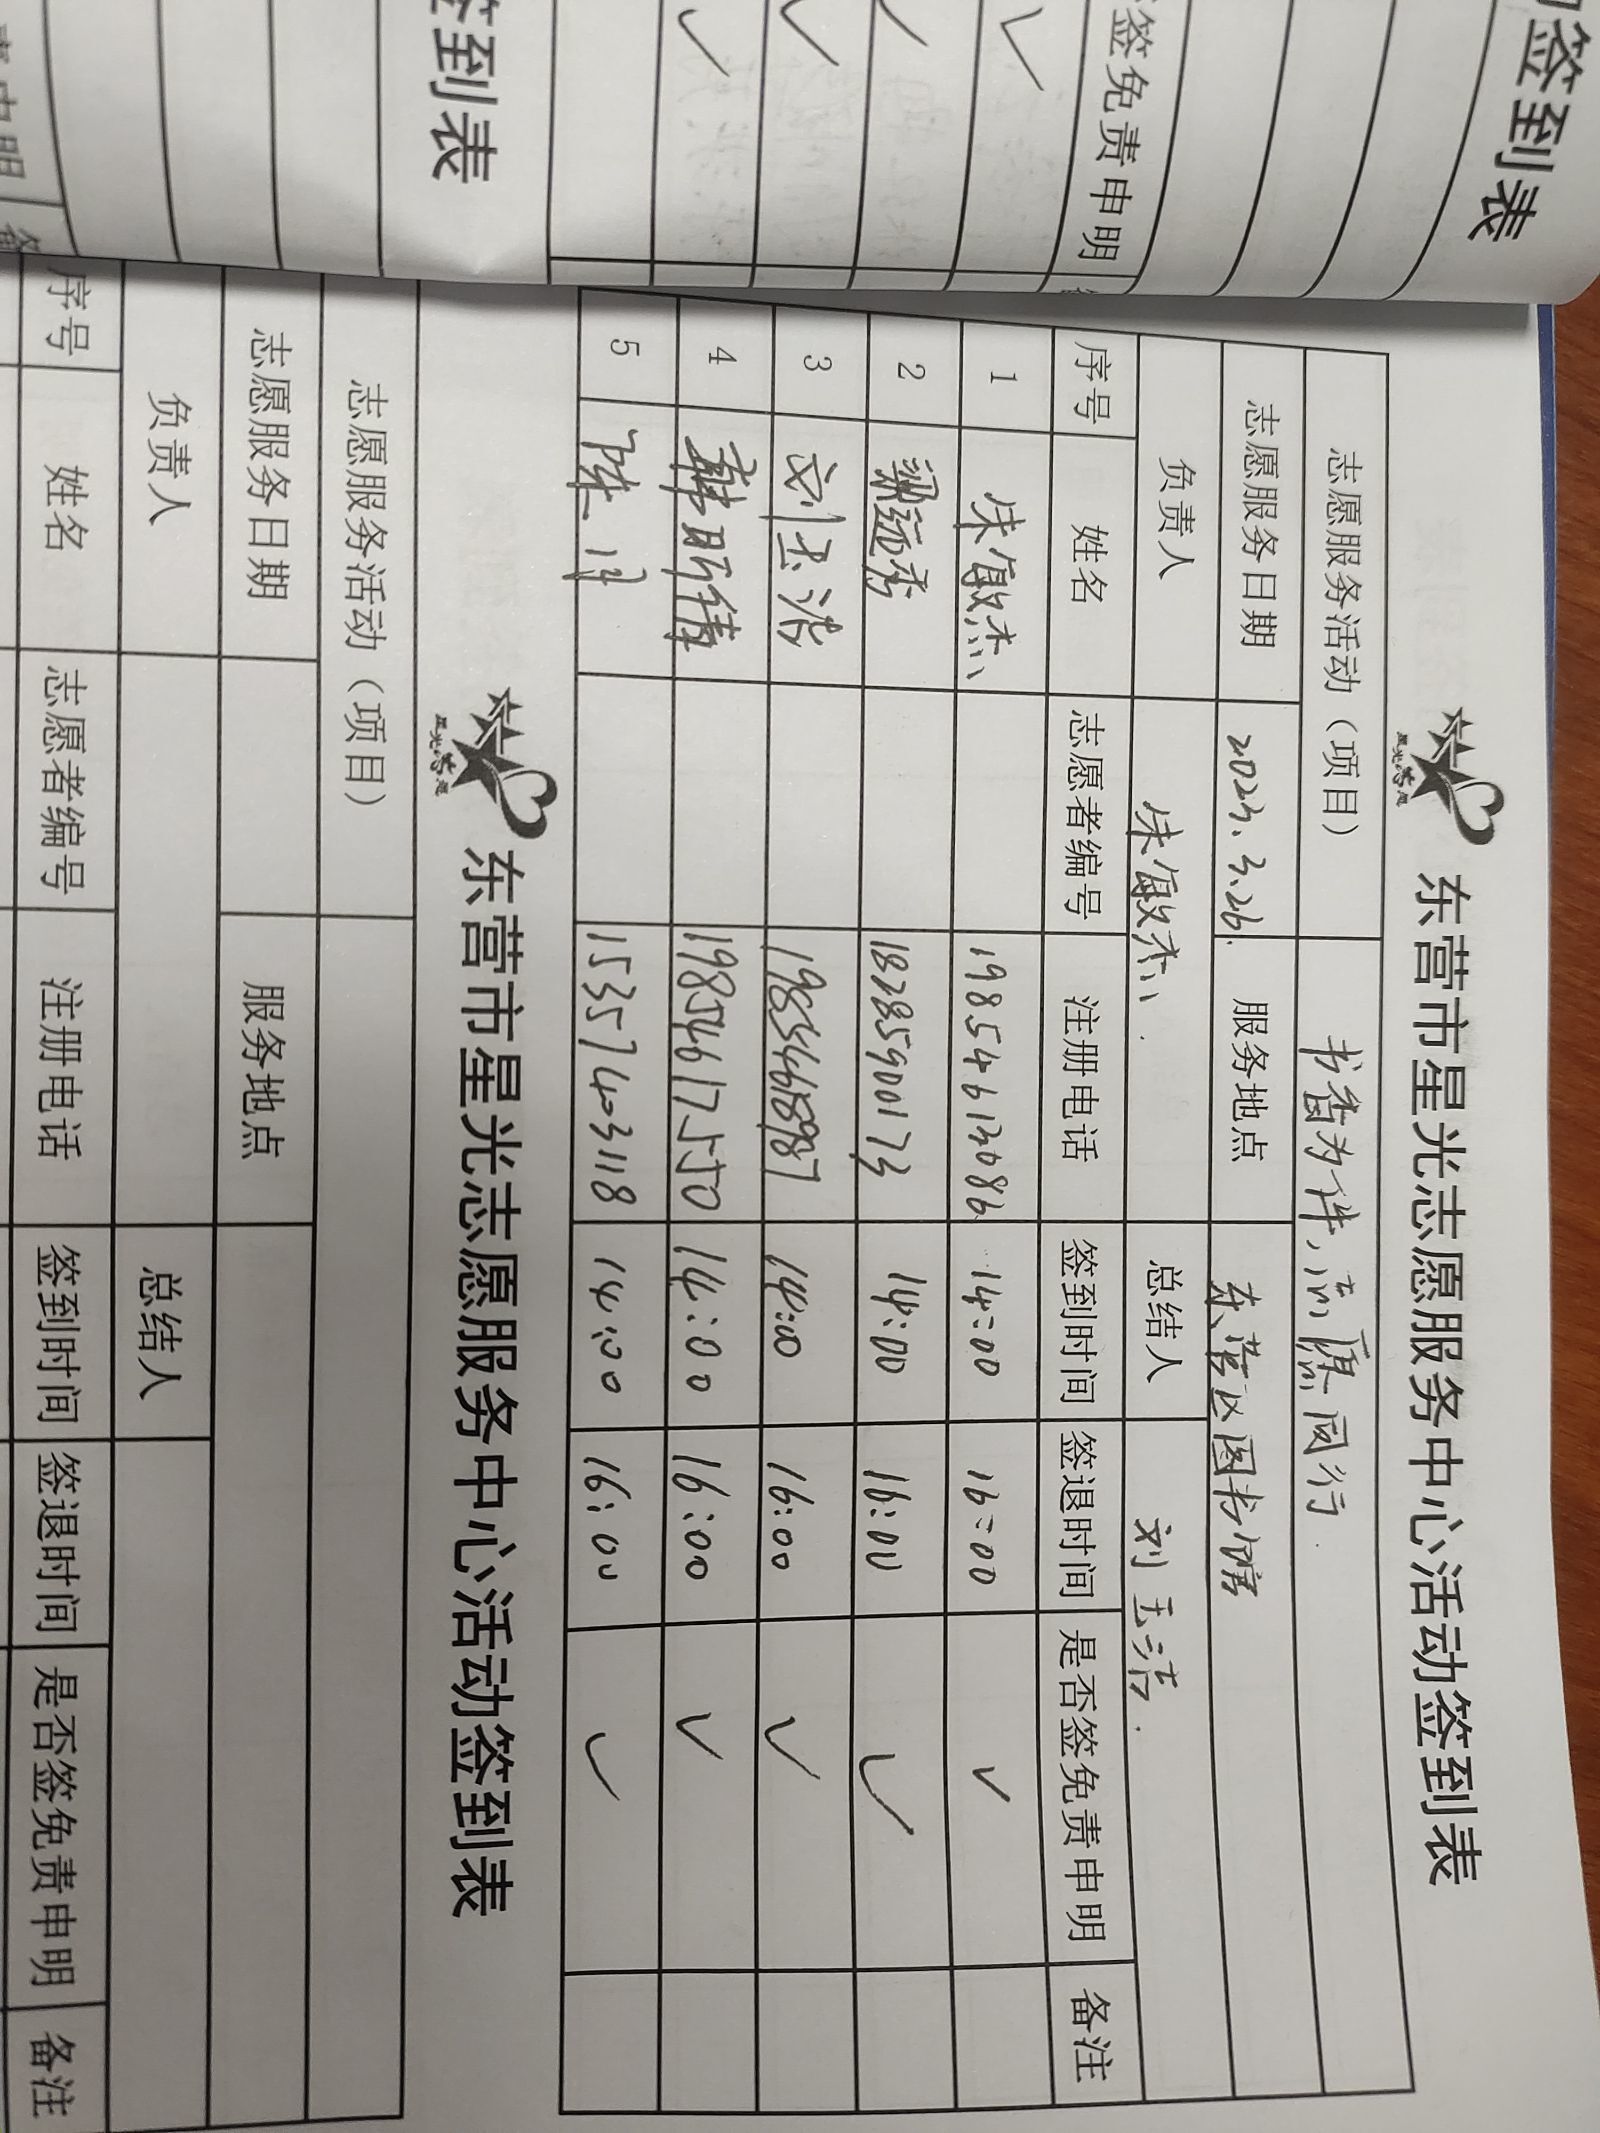 签到表
签到表
签免责申明
责申明
东营市星光志愿服务中心活动签到表
志愿服务活动（项目） 书香为伴，点愿同行
志愿服务日期 2023.3.26. 服务地点 东营区图书馆
负责人 朱敏杰 总结人 刘玉洁
序号 姓名 志愿者编号 注册电话 签到时间 签退时间 是否签免责申明 备注
1 朱敏杰 14:00 16:00 ✓
2 梁远秀 18285900173 14:00 16:00 ✓
3 刘玉洁 14:00 16:00 ✓
4 韩昕倩 19854617550 14:00 16:00 ✓
5 陈 15357403118 14:00 16:00 ✓
东营市星光志愿服务中心活动签到表
志愿服务活动（项目）
志愿服务日期 服务地点
负责人 总结人
序号 姓名 志愿者编号 注册电话 签到时间 签退时间 是否签免责申明 备注